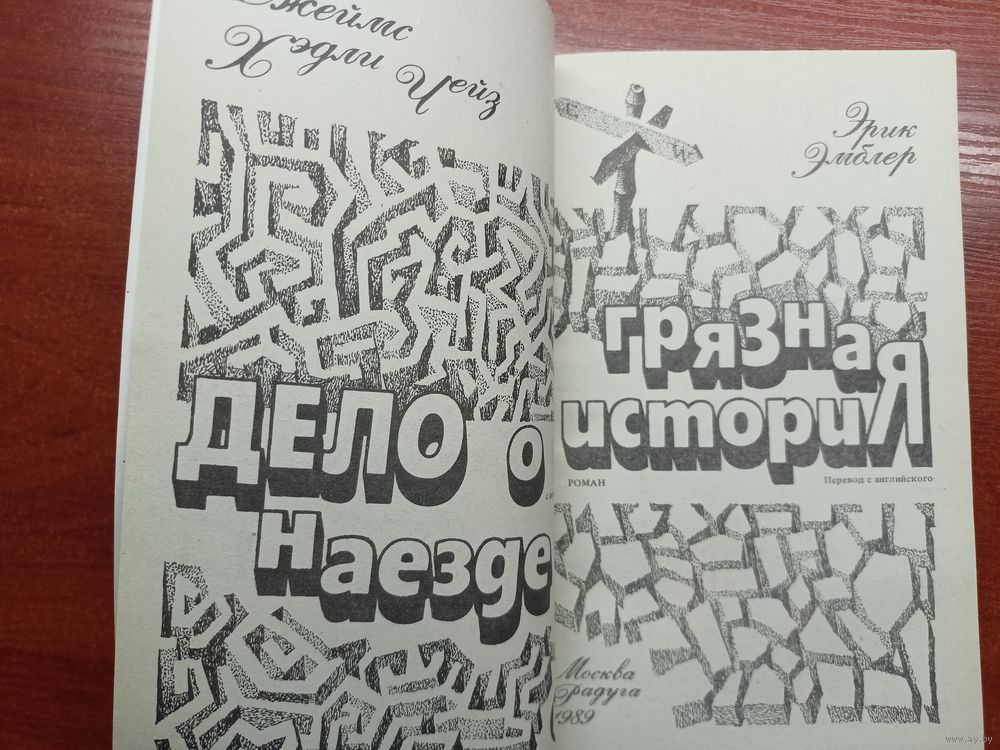 Джеймс
Хэдли Чейз
ДЕЛО О
наезде
Эрик
Эмблер
W
грязная
история
РОМАН
Перевод с английского
Москва
Радуга
1989
www.ay.by